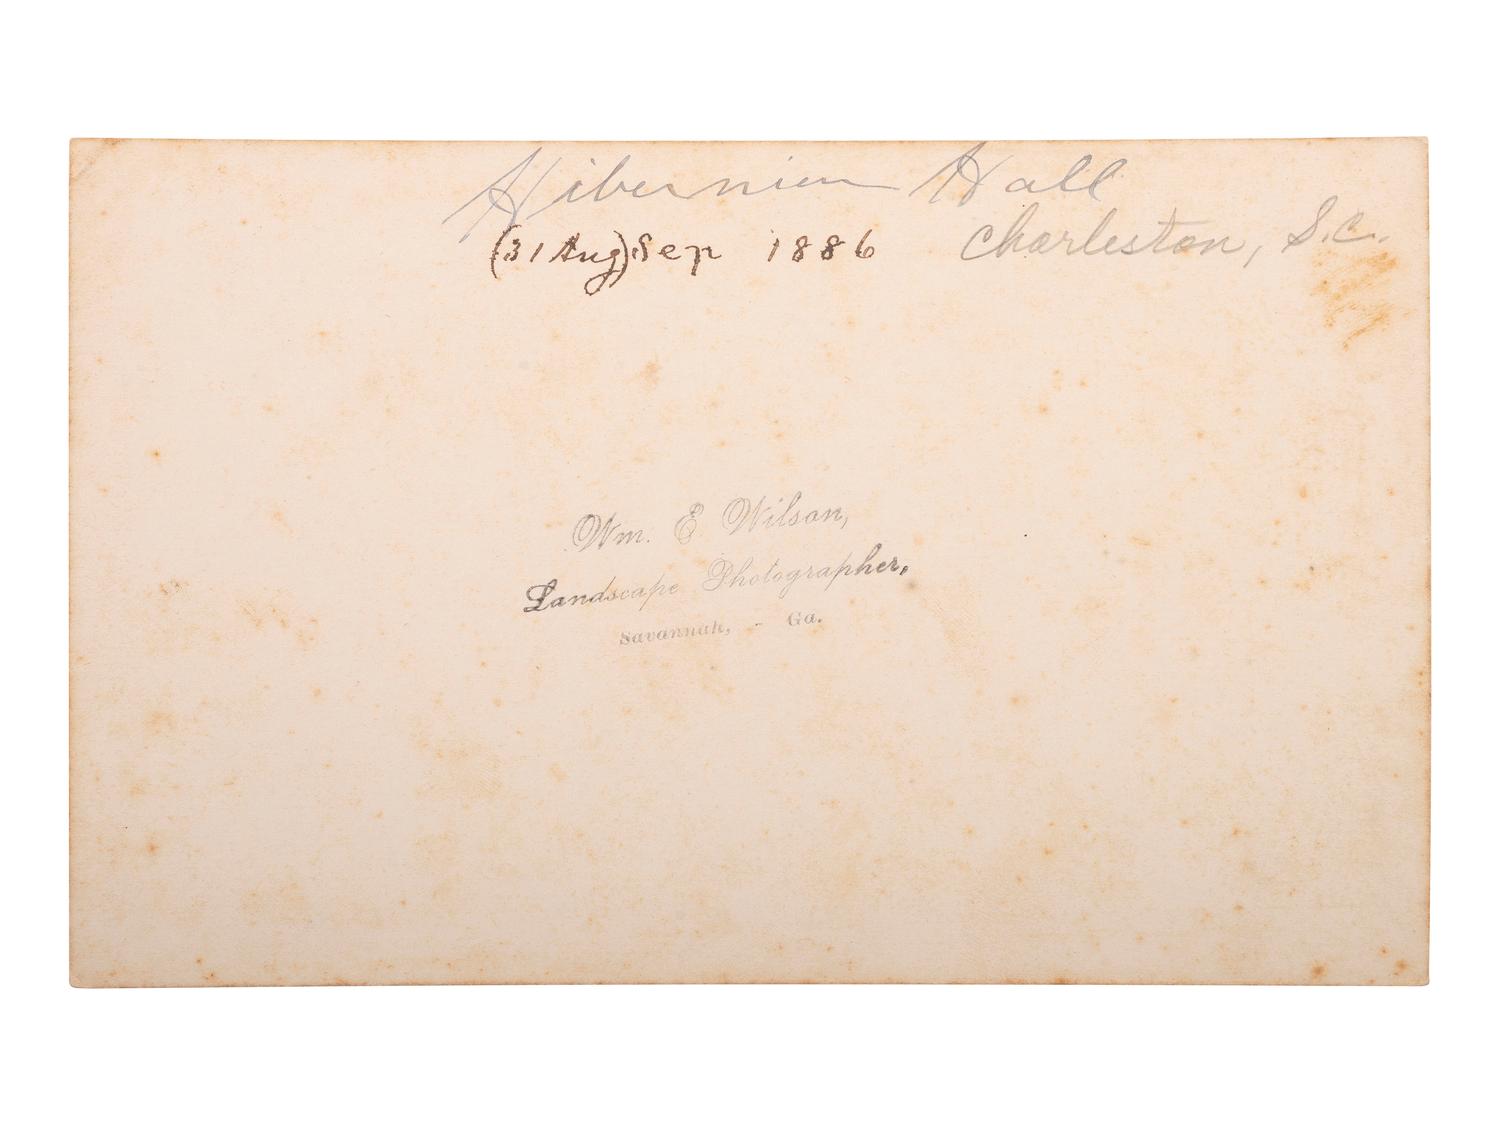 Hibernian Hall
(31 Aug) Sep 1886 Charleston, S.C.
Wm. E Wilson,
Landscape Photographer,
Savannah, - Ga.